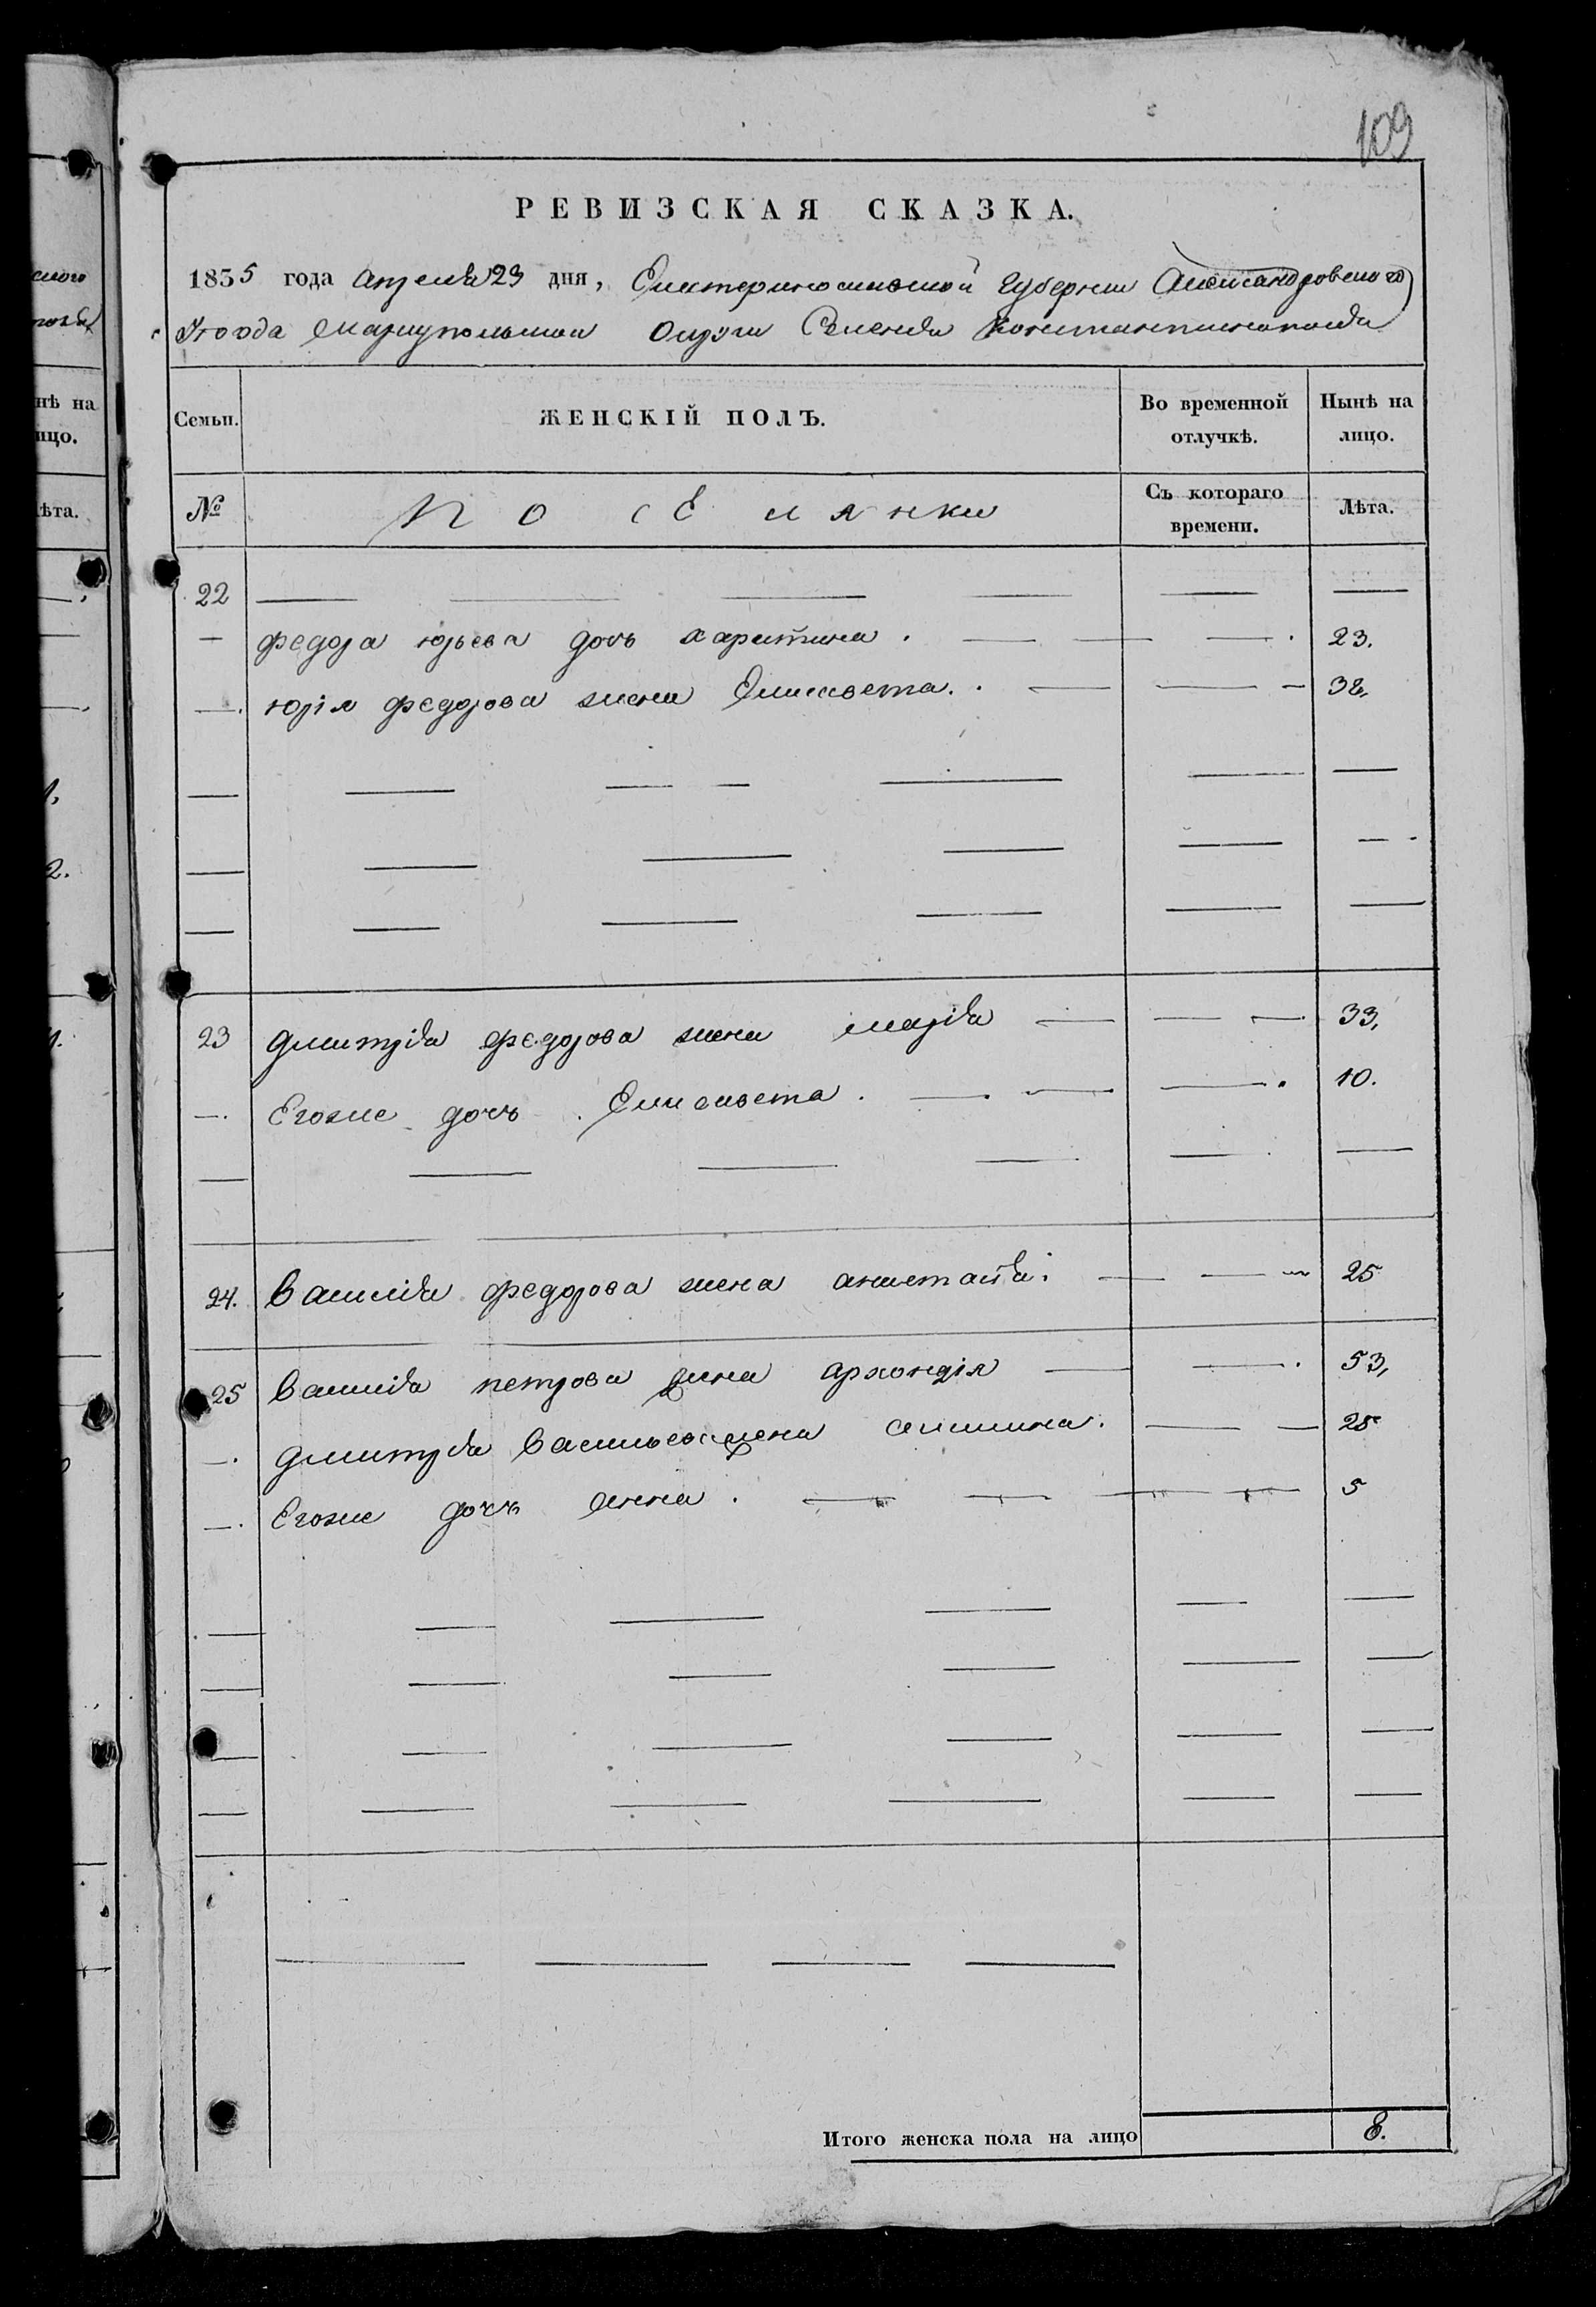 109
РЕВИЗСКАЯ СКАЗКА.
1835 года апреля 23 дня, Екатеринославской Губернии Александровского
Уезда Мариупольской округи Селения Константинополя
Семьи. ЖЕНСКІЙ ПОЛЪ. Во временной отлучкѣ. Нынѣ на лицо.
№ ПОСЕлянки Съ котораго времени. Лѣта.
22
федора юрьева дочь харитина. 23.
юрія федорова жена Елисавета. 38.
23 дмитрія федорова жена марія 33,
Егоже дочь Елисавета. 10.
24. Василія федорова жена анастасія. 25
25 Василія петрова жена архондія 53,
дмитрія Васильева жена 25
Егоже дочь анна. 5
Итого женска пола на лицо 8.
нѣ на
ицо.
ѣта.
2.